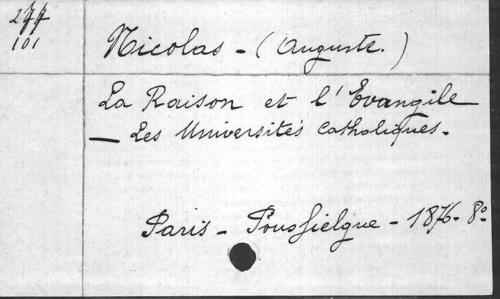 277
101
Nicolas - (Auguste.)
La Raison et l'Evangile
— Les Universités Catholiques.
Paris - Poussielgue - 1876 - 8º